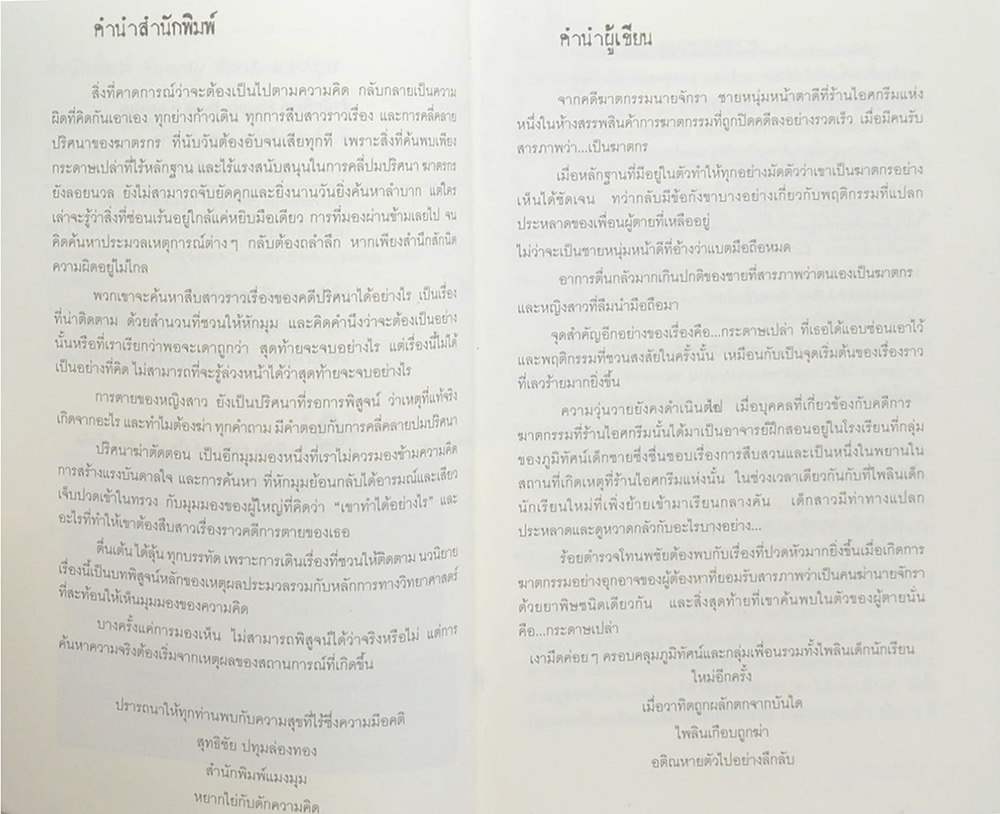 คำนำสำนักพิมพ์
สิ่งที่คาดการณ์ว่าจะต้องเป็นไปตามความคิด กลับกลายเป็นความ
ผิดที่คิดกันเอาเอง ทุกย่างก้าวเดิน ทุกการสืบสาวราวเรื่อง และการคลี่คลาย
ปริศนาของฆาตรกร ที่นับวันต้องอับจนเสียทุกที เพราะสิ่งที่ค้นพบเพียง
กระดาษเปล่าที่ไร้หลักฐาน และไร้แรงสนับสนุนในการคลี่ปมปริศนา ฆาตรกร
ยังลอยนวล ยังไม่สามารถจับยัดคุกและยิ่งนานวันยิ่งค้นหาลำบาก แต่ใคร
เล่าจะรู้ว่าสิ่งที่ซ่อนเร้นอยู่ใกล้แค่หยิบมือเดียว การที่มองผ่านข้ามเลยไป จน
คิดค้นหาประมวลเหตุการณ์ต่างๆ กลับต้องถลำลึก หากเพียงสำนึกสักนิด
ความผิดอยู่ไม่ไกล
พวกเขาจะค้นหาสืบสาวราวเรื่องของคดีปริศนาได้อย่างไร เป็นเรื่อง
ที่น่าติดตาม ด้วยสำนวนที่ชวนให้หักมุม และคิดคำนึงว่าจะต้องเป็นอย่าง
นั้นหรือที่เราเรียกว่าพอจะเดาถูกว่า สุดท้ายจะจบอย่างไร แต่เรื่องนี้ไม่ได้
เป็นอย่างที่คิด ไม่สามารถที่จะรู้ล่วงหน้าได้ว่าสุดท้ายจะจบอย่างไร
การตายของหญิงสาว ยังเป็นปริศนาที่รอการพิสูจน์ ว่าเหตุที่แท้จริง
เกิดจากอะไร และทำไมต้องฆ่า ทุกคำถาม มีคำตอบกับการคลี่คลายปมปริศนา
ปริศนาฆ่าตัดตอน เป็นอีกมุมมองหนึ่งที่เราไม่ควรมองข้ามความคิด
การสร้างแรงบันดาลใจ และการค้นหา ที่หักมุมย้อนกลับได้อารมณ์และเสียว
เจ็บปวดเข้าในทรวง กับมุมมองของผู้ใหญ่ที่คิดว่า “เขาทำได้อย่างไร” และ
อะไรที่ทำให้เขาต้องสืบสาวเรื่องราวคดีการตายของเธอ
ตื่นเต้น ได้ลุ้น ทุกบรรทัด เพราะการเดินเรื่องที่ชวนให้ติดตาม นวนิยาย
เรื่องนี้เป็นบทพิสูจน์หลักของเหตุผลประมวลรวมกับหลักการทางวิทยาศาสตร์
ที่สะท้อนให้เห็นมุมมองของความคิด
บางครั้งแค่การมองเห็น ไม่สามารถพิสูจน์ได้ว่าจริงหรือไม่ แต่การ
ค้นหาความจริงต้องเริ่มจากเหตุผลของสถานการณ์ที่เกิดขึ้น
ปรารถนาให้ทุกท่านพบกับความสุขที่ไร้ซึ่งความมีอคติ
สุทธิชัย ปทุมล่องทอง
สำนักพิมพ์แมงมุม
หยากไย่กับดักความคิด
คำนำผู้เขียน
จากคดีฆาตกรรมนายจักรา ชายหนุ่มหน้าตาดีที่ร้านไอศกรีมแห่ง
หนึ่งในห้างสรรพสินค้าการฆาตกรรมที่ถูกปิดคดีลงอย่างรวดเร็ว เมื่อมีคนรับ
สารภาพว่า...เป็นฆาตกร
เมื่อหลักฐานที่มีอยู่ในตัวทำให้ทุกอย่างมัดตัวว่าเขาเป็นฆาตกรอย่าง
เห็นได้ชัดเจน ทว่ากลับมีข้อกังขาบางอย่างเกี่ยวกับพฤติกรรมที่แปลก
ประหลาดของเพื่อนผู้ตายที่เหลืออยู่
ไม่ว่าจะเป็นชายหนุ่มหน้าดีที่อ้างว่าแบตมือถือหมด
อาการตื่นกลัวมากเกินปกติของชายที่สารภาพว่าตนเองเป็นฆาตกร
และหญิงสาวที่ลืมนำมือถือมา
จุดสำคัญอีกอย่างของเรื่องคือ...กระดาษเปล่า ที่เธอได้แอบซ่อนเอาไว้
และพฤติกรรมที่ชวนสงสัยในครั้งนั้น เหมือนกับเป็นจุดเริ่มต้นของเรื่องราว
ที่เลวร้ายมากยิ่งขึ้น
ความวุ่นวายยังคงดำเนินต่อไป เมื่อบุคคลที่เกี่ยวข้องกับคดีการ
ฆาตกรรมที่ร้านไอศกรีมนั้นได้มาเป็นอาจารย์ฝึกสอนอยู่ในโรงเรียนที่กลุ่ม
ของภูมิทัศน์เด็กชายซึ่งชื่นชอบเรื่องการสืบสวนและเป็นหนึ่งในพยานใน
สถานที่เกิดเหตุที่ร้านไอศกรีมแห่งนั้น ในช่วงเวลาเดียวกันกับที่ไพลินเด็ก
นักเรียนใหม่ที่เพิ่งย้ายเข้ามาเรียนกลางคัน เด็กสาวมีท่าทางแปลก
ประหลาดและดูหวาดกลัวกับอะไรบางอย่าง...
ร้อยตำรวจโทนพชัยต้องพบกับเรื่องที่ปวดหัวมากยิ่งขึ้นเมื่อเกิดการ
ฆาตกรรมอย่างอุกอาจของผู้ต้องหาที่ยอมรับสารภาพว่าเป็นคนฆ่านายจักรา
ด้วยยาพิษชนิดเดียวกัน และสิ่งสุดท้ายที่เขาค้นพบในตัวของผู้ตายนั่น
คือ...กระดาษเปล่า
เงามืดค่อยๆ ครอบคลุมภูมิทัศน์และกลุ่มเพื่อนรวมทั้งไพลินเด็กนักเรียน
ใหม่อีกครั้ง
เมื่อวาทิตถูกผลักตกจากบันได
ไพลินเกือบถูกฆ่า
อติณหายตัวไปอย่างลึกลับ